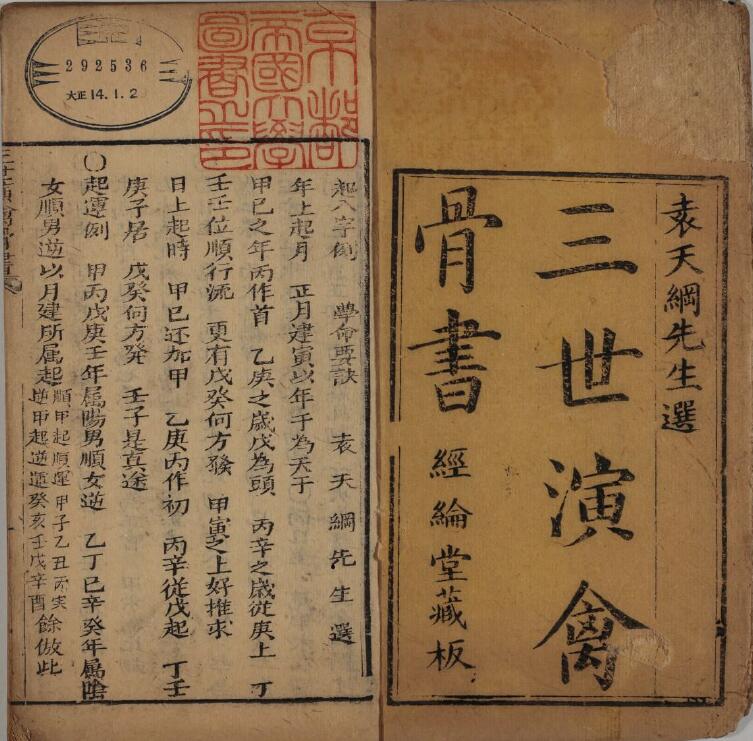 袁天綱先生選
三世演禽
骨書
經綸堂藏板
京都
帝國大學
圖書之印
292536
大正14.1.2
起八字例 學命要訣 袁天綱先生選
年上起月 正月建寅以年干為天干
甲己之年丙作首 乙庚之歲戊為頭 丙辛之歲從庚上 丁
壬壬位順行流 更有戊癸何方發 甲寅之上好推求
日上起時 甲己还加甲 乙庚丙作初 丙辛從戊起 丁壬
庚子居 戊癸何方発 壬子是真途
〇起運例 甲丙戊庚壬年属陽男順女逆 乙丁己辛癸年属陰
女順男逆以月建所属起
順甲起順運甲子乙丑丙寅
逆甲起逆運癸亥壬戌辛酉
餘倣此